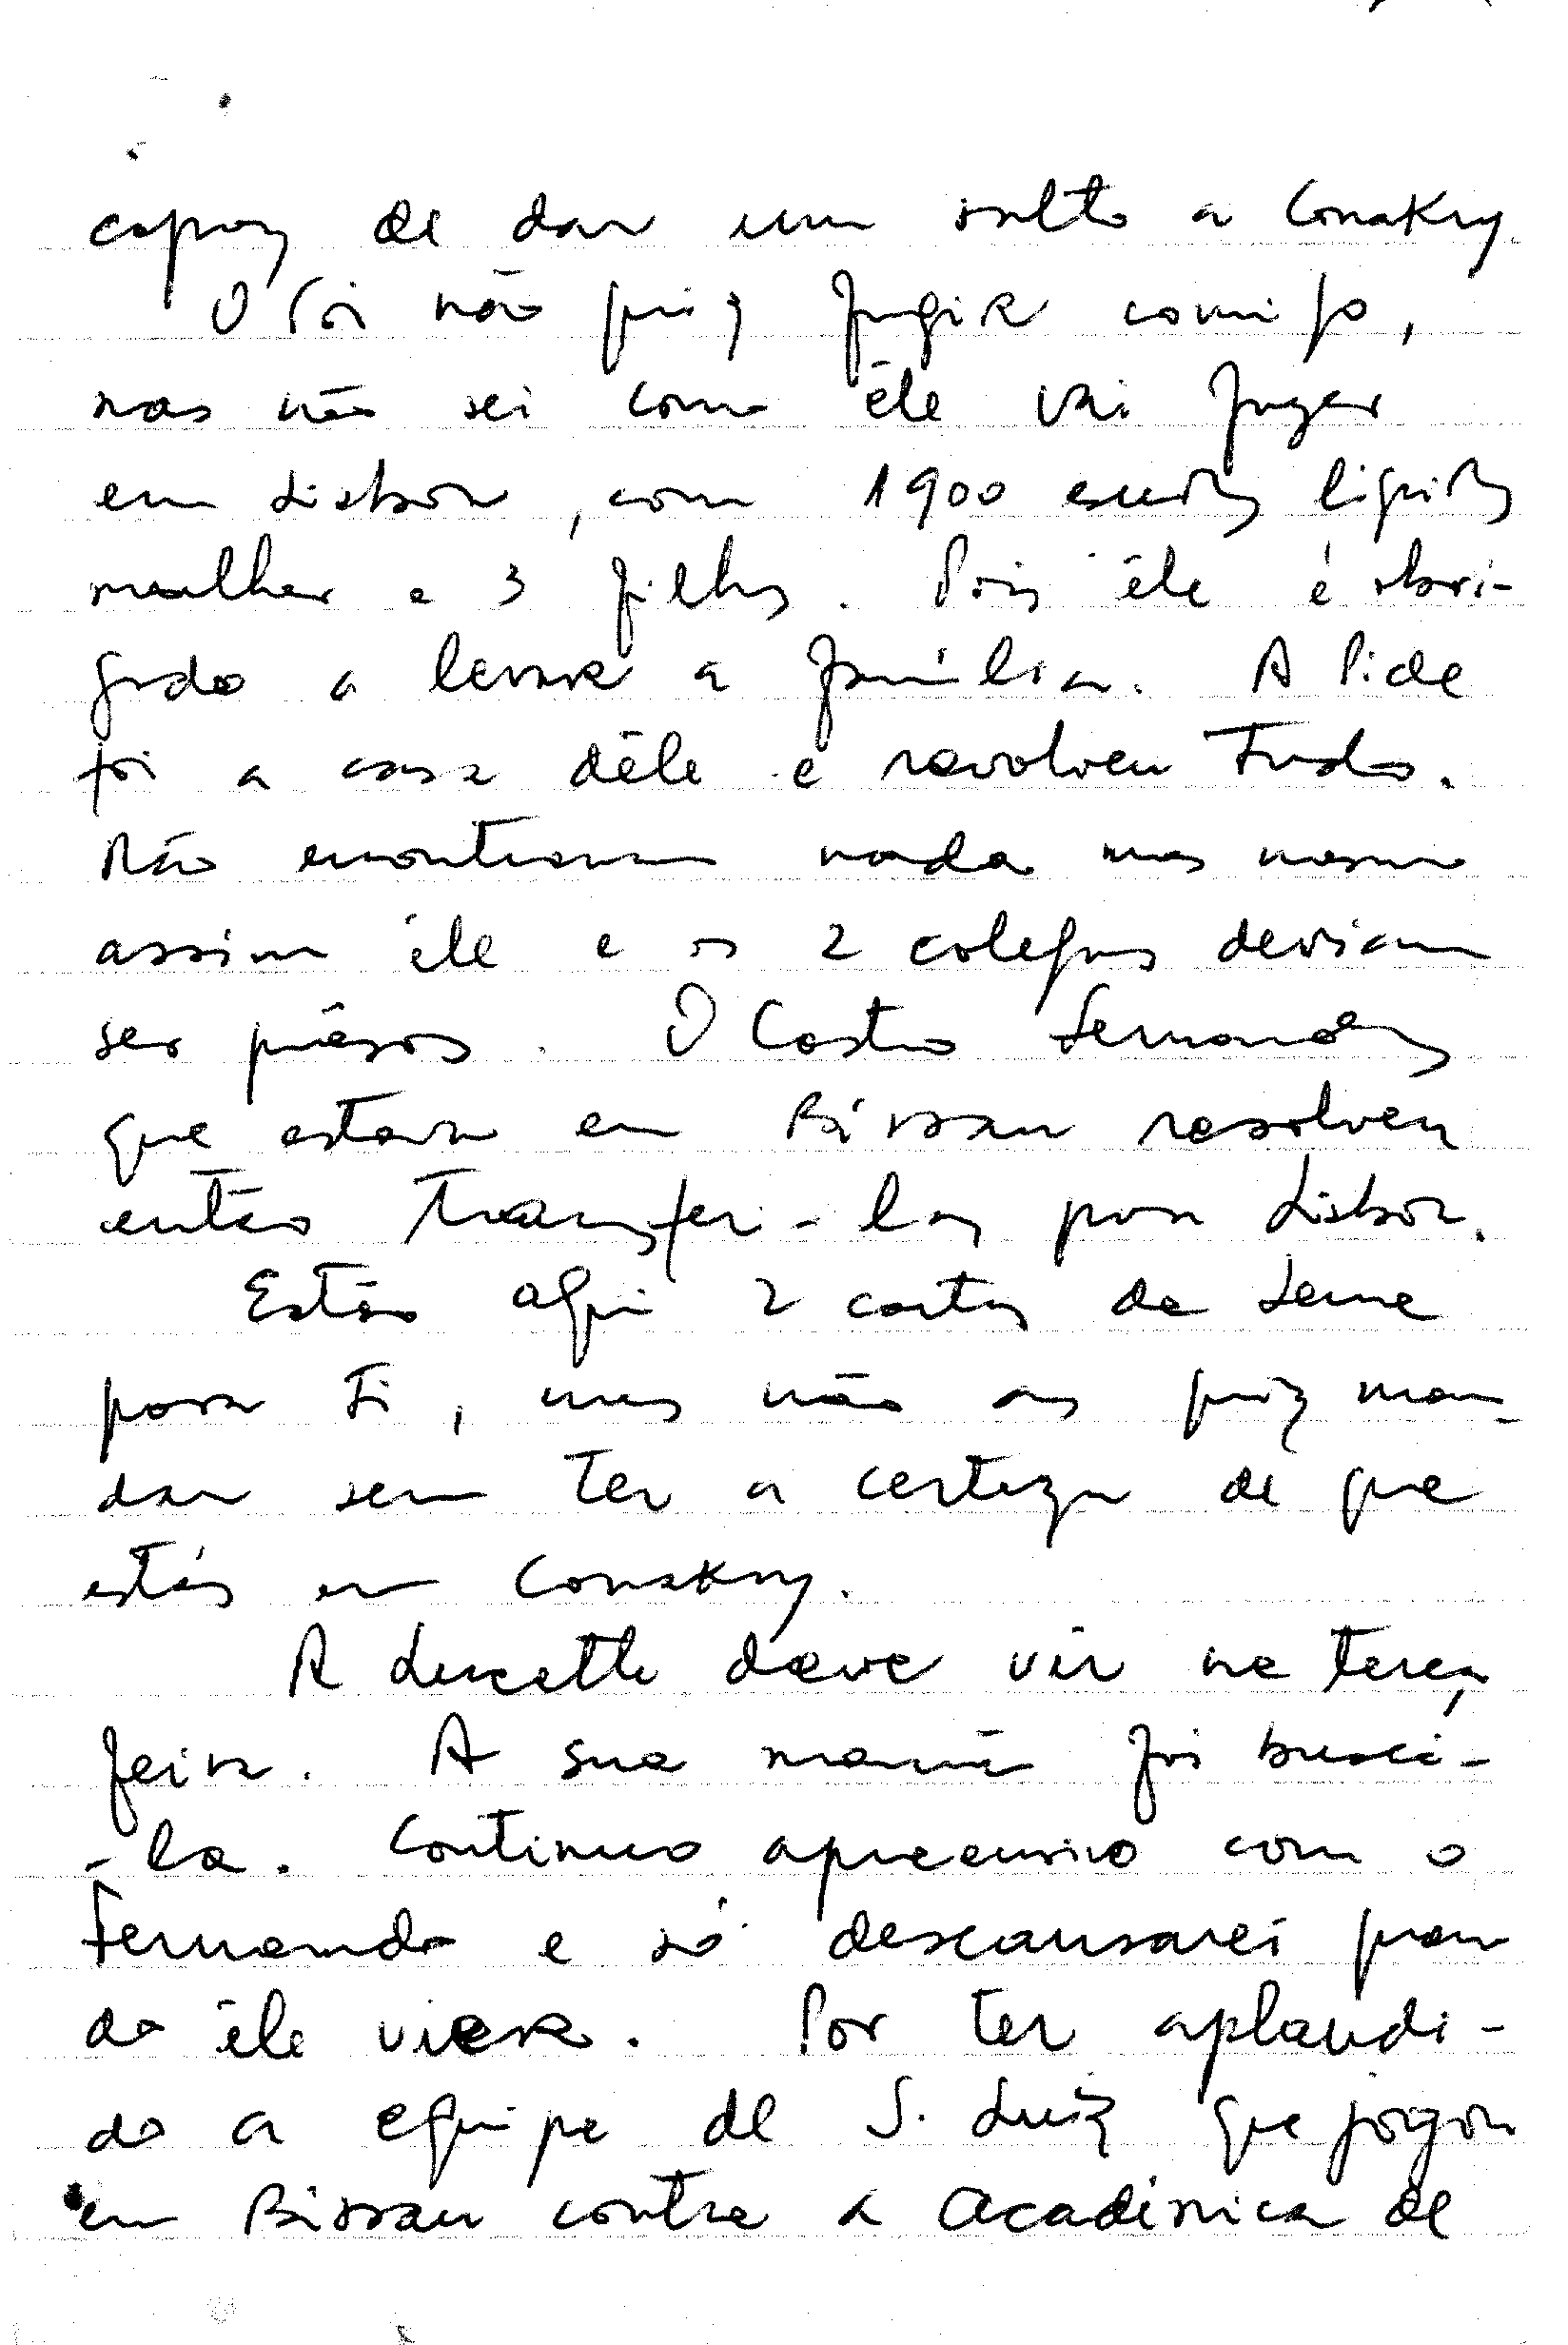 capaz de dar um salto a Conakry.
O Rói não quiz fugir comigo,
mas não sei como êle vai fugir
em Lisboa, com 1900 escudos líquidos
mulher e 3 filhos. Pois êle é obri-
gado a levar a família. A Pide
foi a casa dêle e revolveu tudo.
Não encontraram nada mas mesmo
assim êle e os 2 colegas deviam
ser prêsos. O Castro Fernandes
que estava em Bissau resolveu
então transferi-los para Lisboa.
Estão aqui 2 cartas da Lena
para ti, mas não as quiz man-
dar sem ter a certeza de que
estás em Conakry.
A Lucette deve vir na terça
feira. A sua mamã foi buscá-
-la. Continuo apreensivo com o
Fernando e só descansarei quan
do êle vier. Por ter aplaudi-
do a equipe de S. Luiz que jogou
em Bissau contra a Académica de